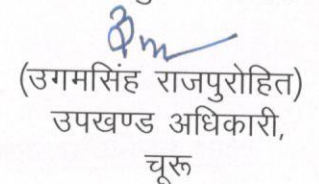 (उगमसिंह राजपुरोहित)
उपखण्ड अधिकारी,
चूरू